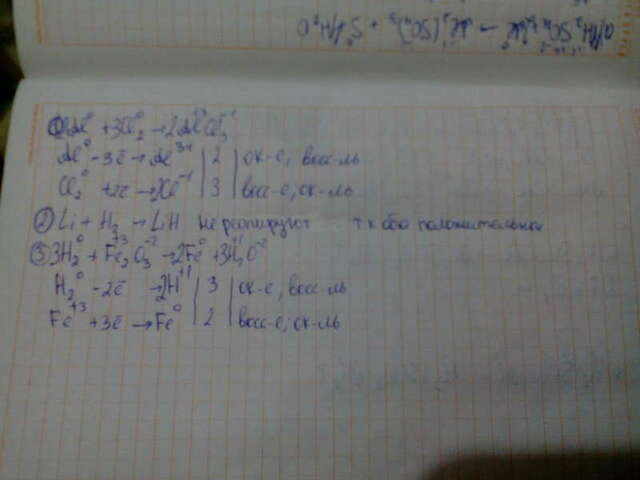 ① 2Al⁰ + 3Cl₂⁰ → 2Al⁺³Cl₃⁻¹
Al⁰ - 3ē → Al³⁺ | 2 | ок-е, восс-ль
Cl₂⁰ + 2ē → 2Cl⁻¹ | 3 | восс-е, ок-ль
② Li + H₂ → LiH не реагируют т к оба положительные
③ 3H₂⁰ + Fe₂⁺³O₃⁻² → 2Fe⁰ + 3H₂⁺¹O⁻²
H₂⁰ - 2ē → 2H⁺¹ | 3 | ок-е, восс-ль
Fe⁺³ + 3ē → Fe⁰ | 2 | восс-е, ок-ль